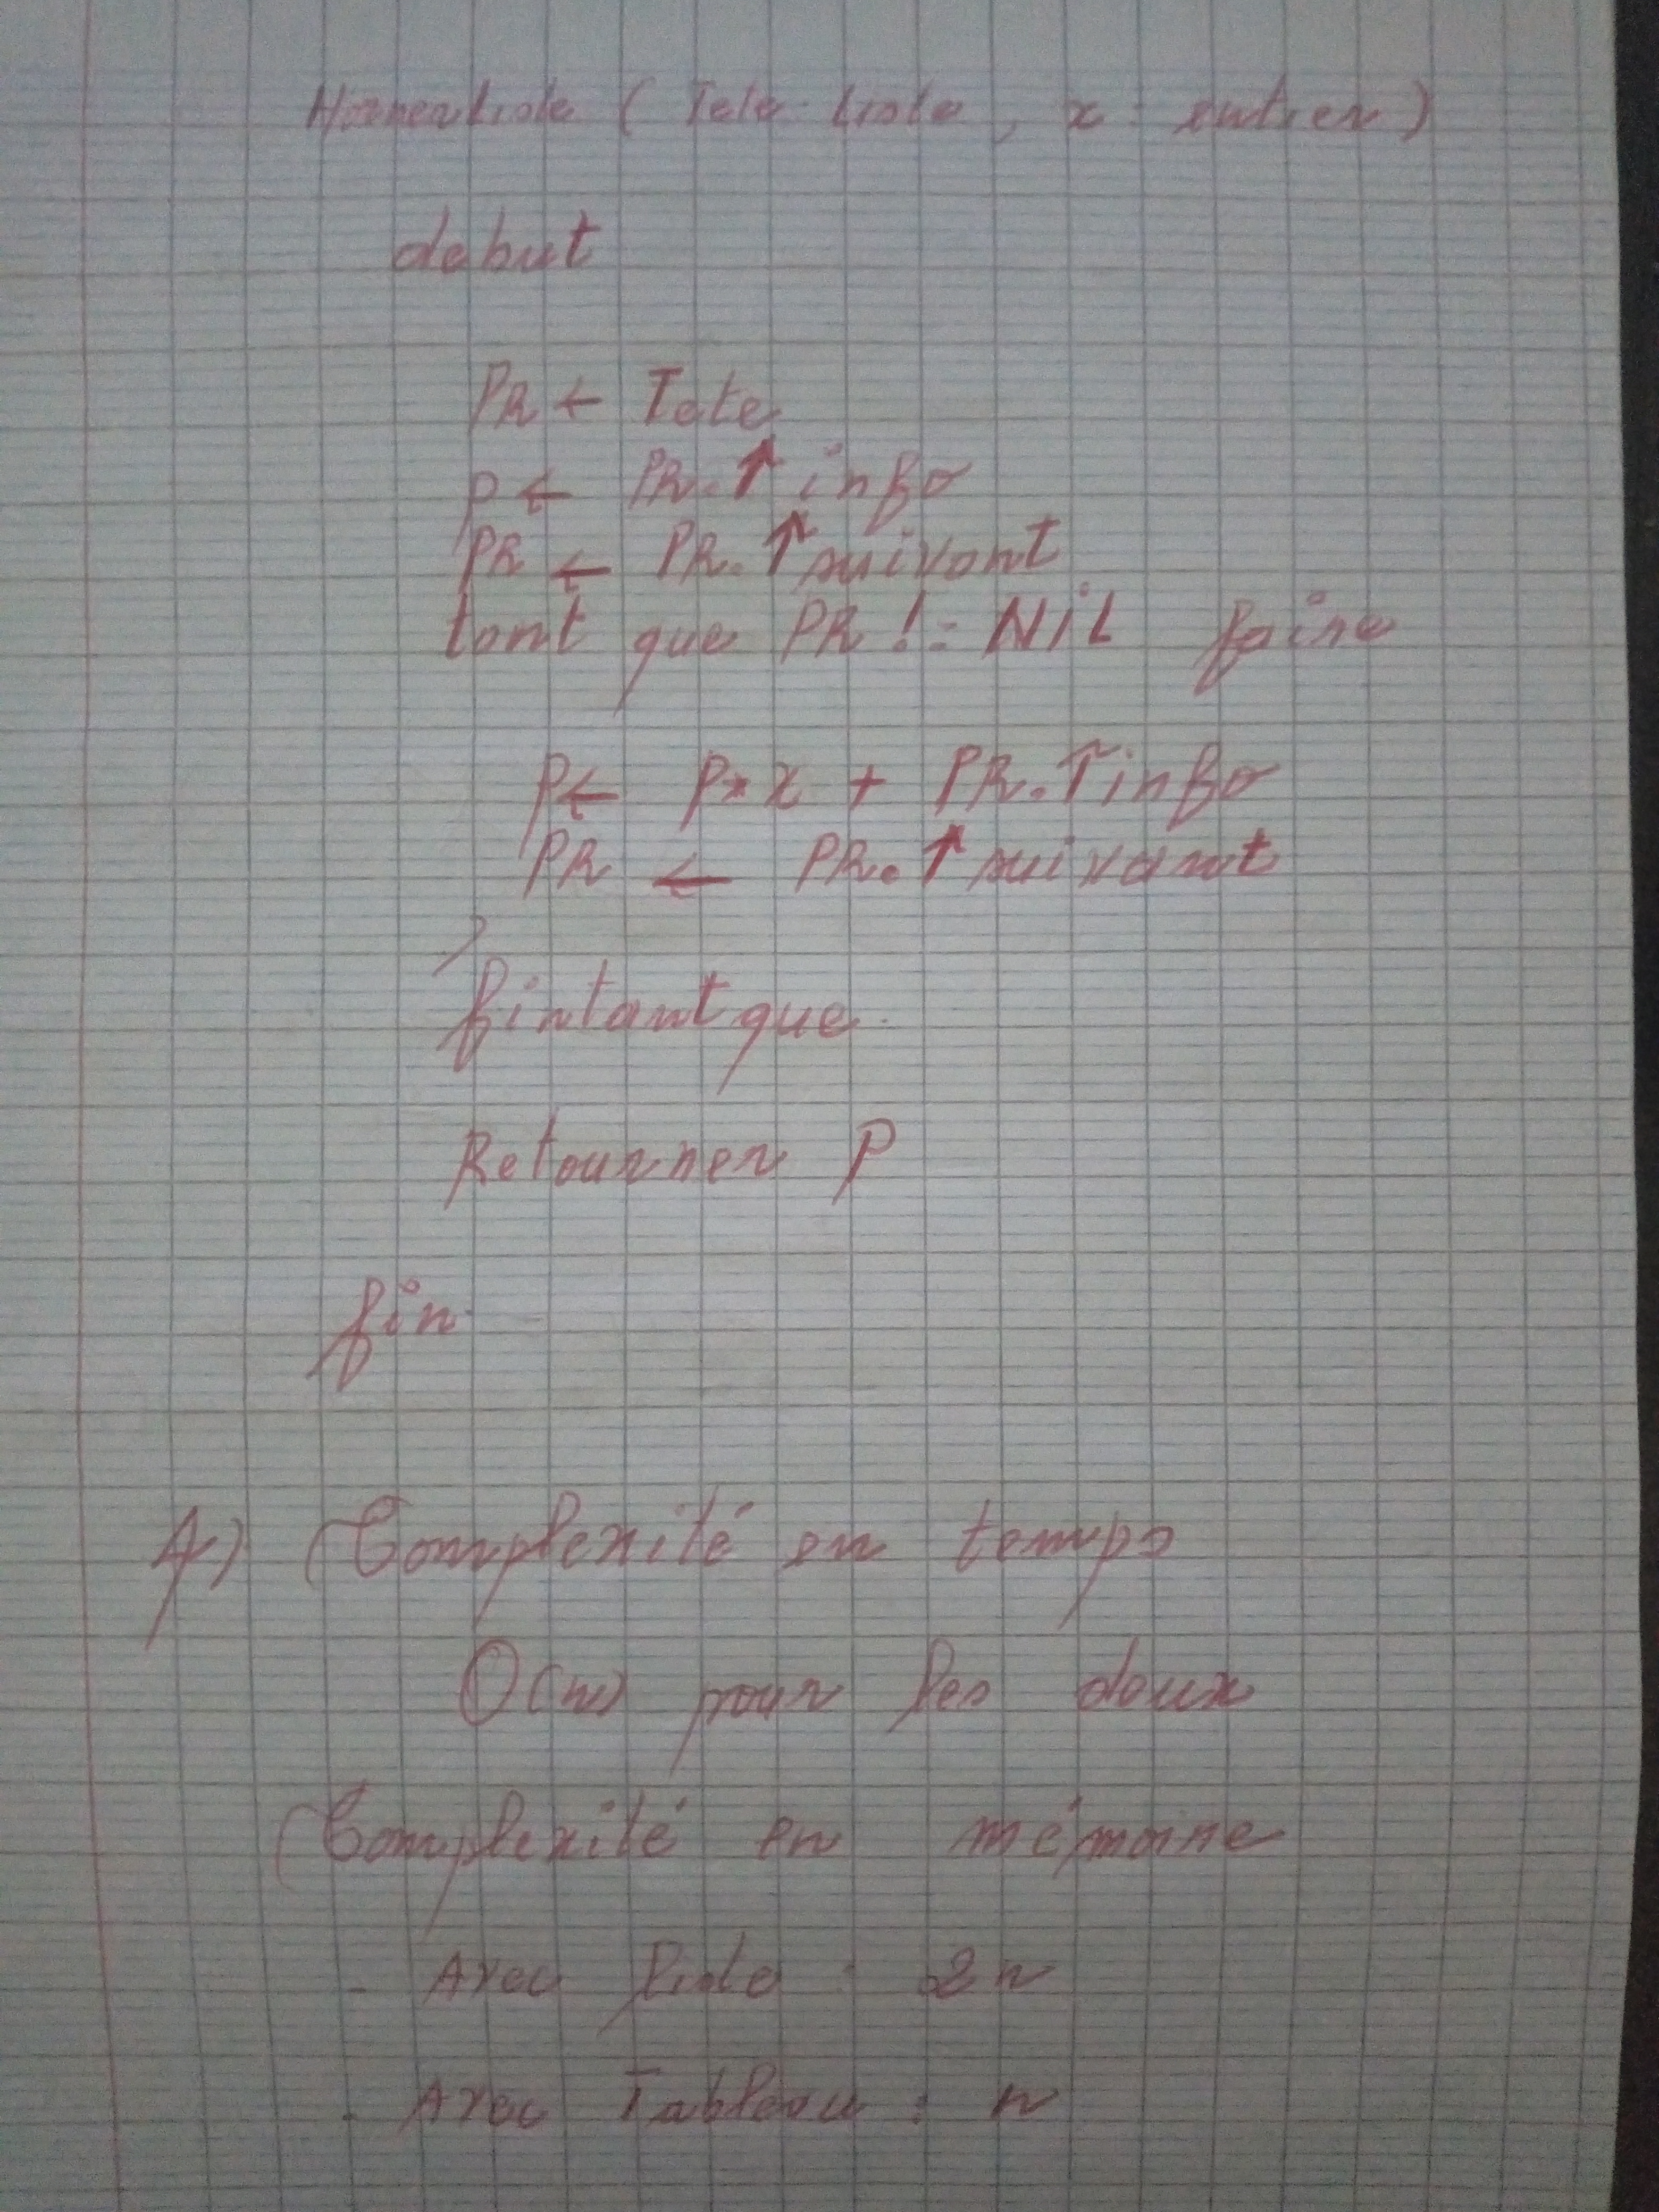 HornerListe ( Tete Liste , x : entier )
debut
PR ← Tete
p ← PR.↑ info
PR ← PR.↑ suivant
tant que PR != NIL faire
p ← p * x + PR.↑ info
PR ← PR.↑ suivant
fintant que
Retourner P
fin
4) Complexité en temps
O(n) pour les deux
Complexité en mémoire
- Avec liste : 2n
- Avec Tableau : n